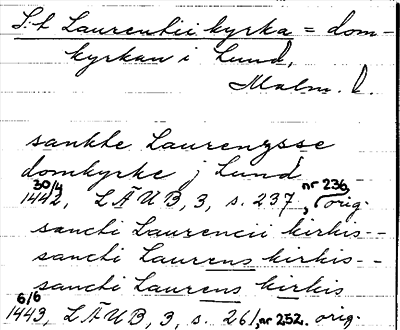 S:t Laurentii kyrka = dom-
kyrkan i Lund,
Malm. l.
sankte Laurenzsse
domkyrke j Lund
30/4 1442, LÄUB, 3, s. 237, nr 236, orig.
sancti Laurencii kirkis--
sancti Laurens kirkis--
sancti Laurens kirkis
6/6 1443, LÄUB, 3, s. 261, nr 252. orig.